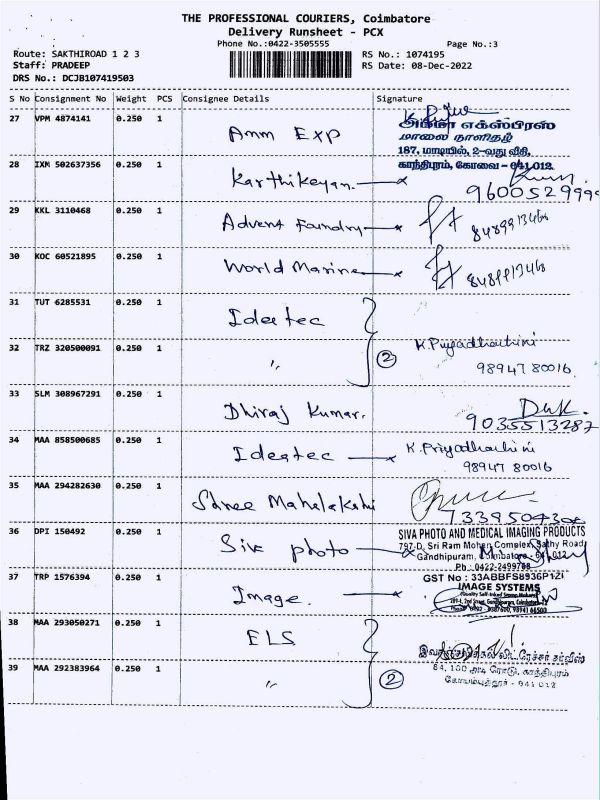 THE PROFESSIONAL COURIERS, Coimbatore
Delivery Runsheet - PCX
Phone No.:0422-3505555 Page No.:3
Route: SAKTHIROAD 1 2 3 RS No.: 1074195
Staff: PRADEEP RS Date: 08-Dec-2022
DRS No.: DCJB107419503
S No Consignment No Weight PCS Consignee Details Signature
27 VPM 4874141 0.250 1 Amm Exp
அம்மா எக்ஸ்பிரஸ்
மாலை நாளிதழ்
187, மாடியில், 2-வது வீதி,
காந்திபுரம், கோவை - 641 012.
28 IXM 502637356 0.250 1 Karthikeyan.
9600529999
29 KKL 3110468 0.250 1 Advent Foundry 8489913468
30 KOC 60521895 0.250 1 World Marine 8489913468
31 TUT 6285531 0.250 1 Ideatec
32 TRZ 320500091 0.250 1 〃 2 K.Priyadharshini
98947 80016.
33 SLM 308967291 0.250 1 Dhiraj Kumar.
9035513287
34 MAA 858500685 0.250 1 Ideatec K.Priyadharshini
98947 80016
35 MAA 294282630 0.250 1 Shree Mahalakshi
7339504304
36 DPI 150492 0.250 1 Siva photo
SIVA PHOTO AND MEDICAL IMAGING PRODUCTS
797-D, Sri Ram Mohan Complex, Sathy Road
Gandhipuram, Coimbatore - 641 012
Ph : 0422-2499798
GST No : 33ABBFS8936P1ZI
37 TRP 1576394 0.250 1 Image.
IMAGE SYSTEMS
38 MAA 293050271 0.250 1 ELS
39 MAA 292383964 0.250 1 〃 2
64, 100 அடி ரோடு, காந்திபுரம்
கோயம்புத்தூர் - 641 012